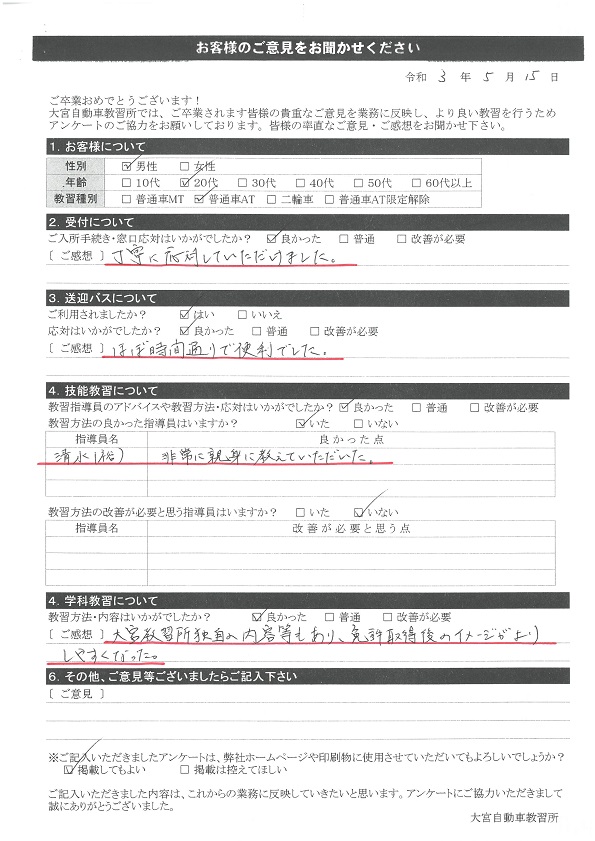 お客様のご意見をお聞かせください
令和 3 年 5 月 15 日
ご卒業おめでとうございます！
大宮自動車教習所では、ご卒業されます皆様の貴重なご意見を業務に反映し、より良い教習を行うため
アンケートのご協力をお願いしております。皆様の率直なご意見・ご感想をお聞かせ下さい。
1. お客様について
性別 ☑男性 □女性
年齢 □10代 ☑20代 □30代 □40代 □50代 □60代以上
教習種別 □普通車MT ☑普通車AT □二輪車 □普通車AT限定解除
2. 受付について
ご入所手続き・窓口応対はいかがでしたか? ☑良かった □普通 □改善が必要
[ ご感想 ] 丁寧に応対していただけました。
3. 送迎バスについて
ご利用されましたか? ☑はい □いいえ
応対はいかがでしたか? ☑良かった □普通 □改善が必要
[ ご感想 ] ほぼ時間通りで便利でした。
4. 技能教習について
教習指導員のアドバイスや教習方法・応対はいかがでしたか? ☑良かった □普通 □改善が必要
教習方法の良かった指導員はいますか? ☑いた □いない
指導員名 良かった点
清水(裕) 非常に親身に教えていただいた。
教習方法の改善が必要と思う指導員はいますか? □いた ☑いない
指導員名 改善が必要と思う点
4. 学科教習について
教習方法・内容はいかがでしたか? ☑良かった □普通 □改善が必要
[ ご感想 ] 大宮教習所独自の内容等もあり、免許取得後のイメージがより
しやすくなった。
6. その他、ご意見等ございましたらご記入下さい
[ ご意見 ]
※ご記入いただきましたアンケートは、弊社ホームページや印刷物に使用させていただいてもよろしいでしょうか?
☑掲載してもよい □掲載は控えてほしい
ご記入いただきました内容は、これからの業務に反映していきたいと思います。アンケートにご協力いただきまして
誠にありがとうございました。
大宮自動車教習所